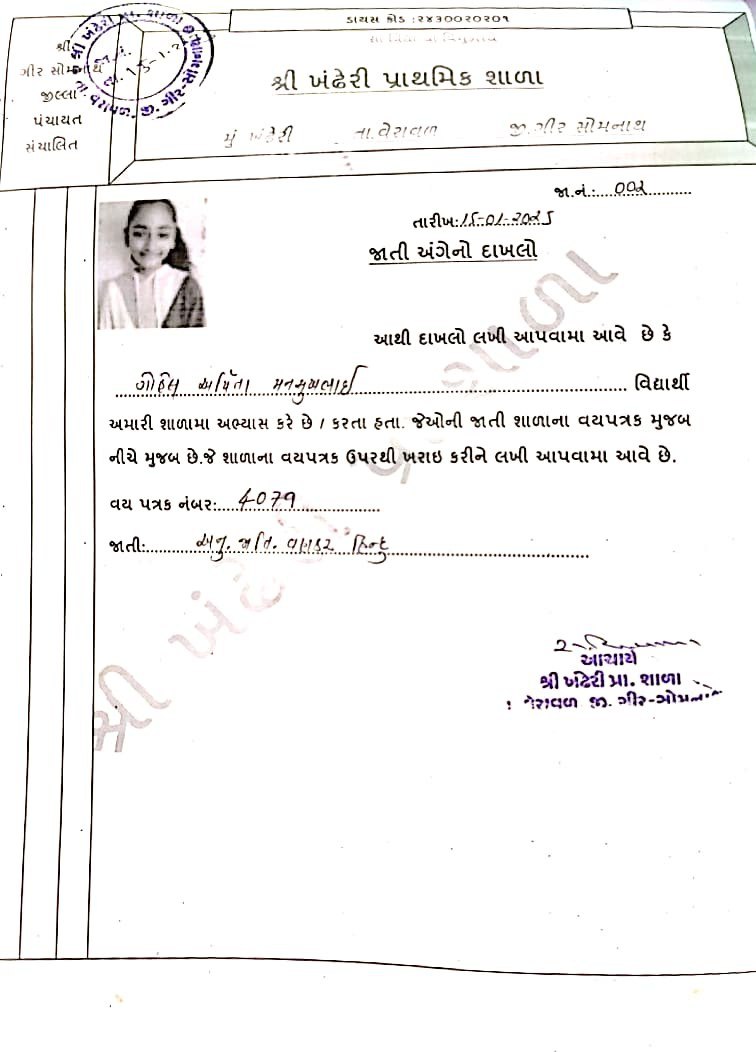 ડાયસ કોડ :૨૪૩૦૦૨૦૨૦૧
શ્રી
ગીર સોમનાથ
જીલ્લા
પંચાયત
સંચાલિત
શ્રી ખંઢેરી પ્રાથમિક શાળા
મું ખંઢેરી તા.વેરાવળ જી.ગીર સોમનાથ
જા.નં.:....002
તારીખ:
જાતી અંગેનો દાખલો
આથી દાખલો લખી આપવામા આવે છે કે
ગોહિલ અર્પિતા મનસુખભાઈ વિદ્યાર્થી
અમારી શાળામા અભ્યાસ કરે છે / કરતા હતા. જેઓની જાતી શાળાના વયપત્રક મુજબ
નીચે મુજબ છે.જે શાળાના વયપત્રક ઉપરથી ખરાઇ કરીને લખી આપવામા આવે છે.
વય પત્રક નંબર:....4079
જાતી:....અનુ. જાતિ. વણકર હિન્દુ
આચાર્ય
શ્રી ખંઢેરી પ્રા. શાળા
વેરાવળ જી. ગીર-સોમનાથ
શ્રી ખંઢેરી પ્રા. શાળા